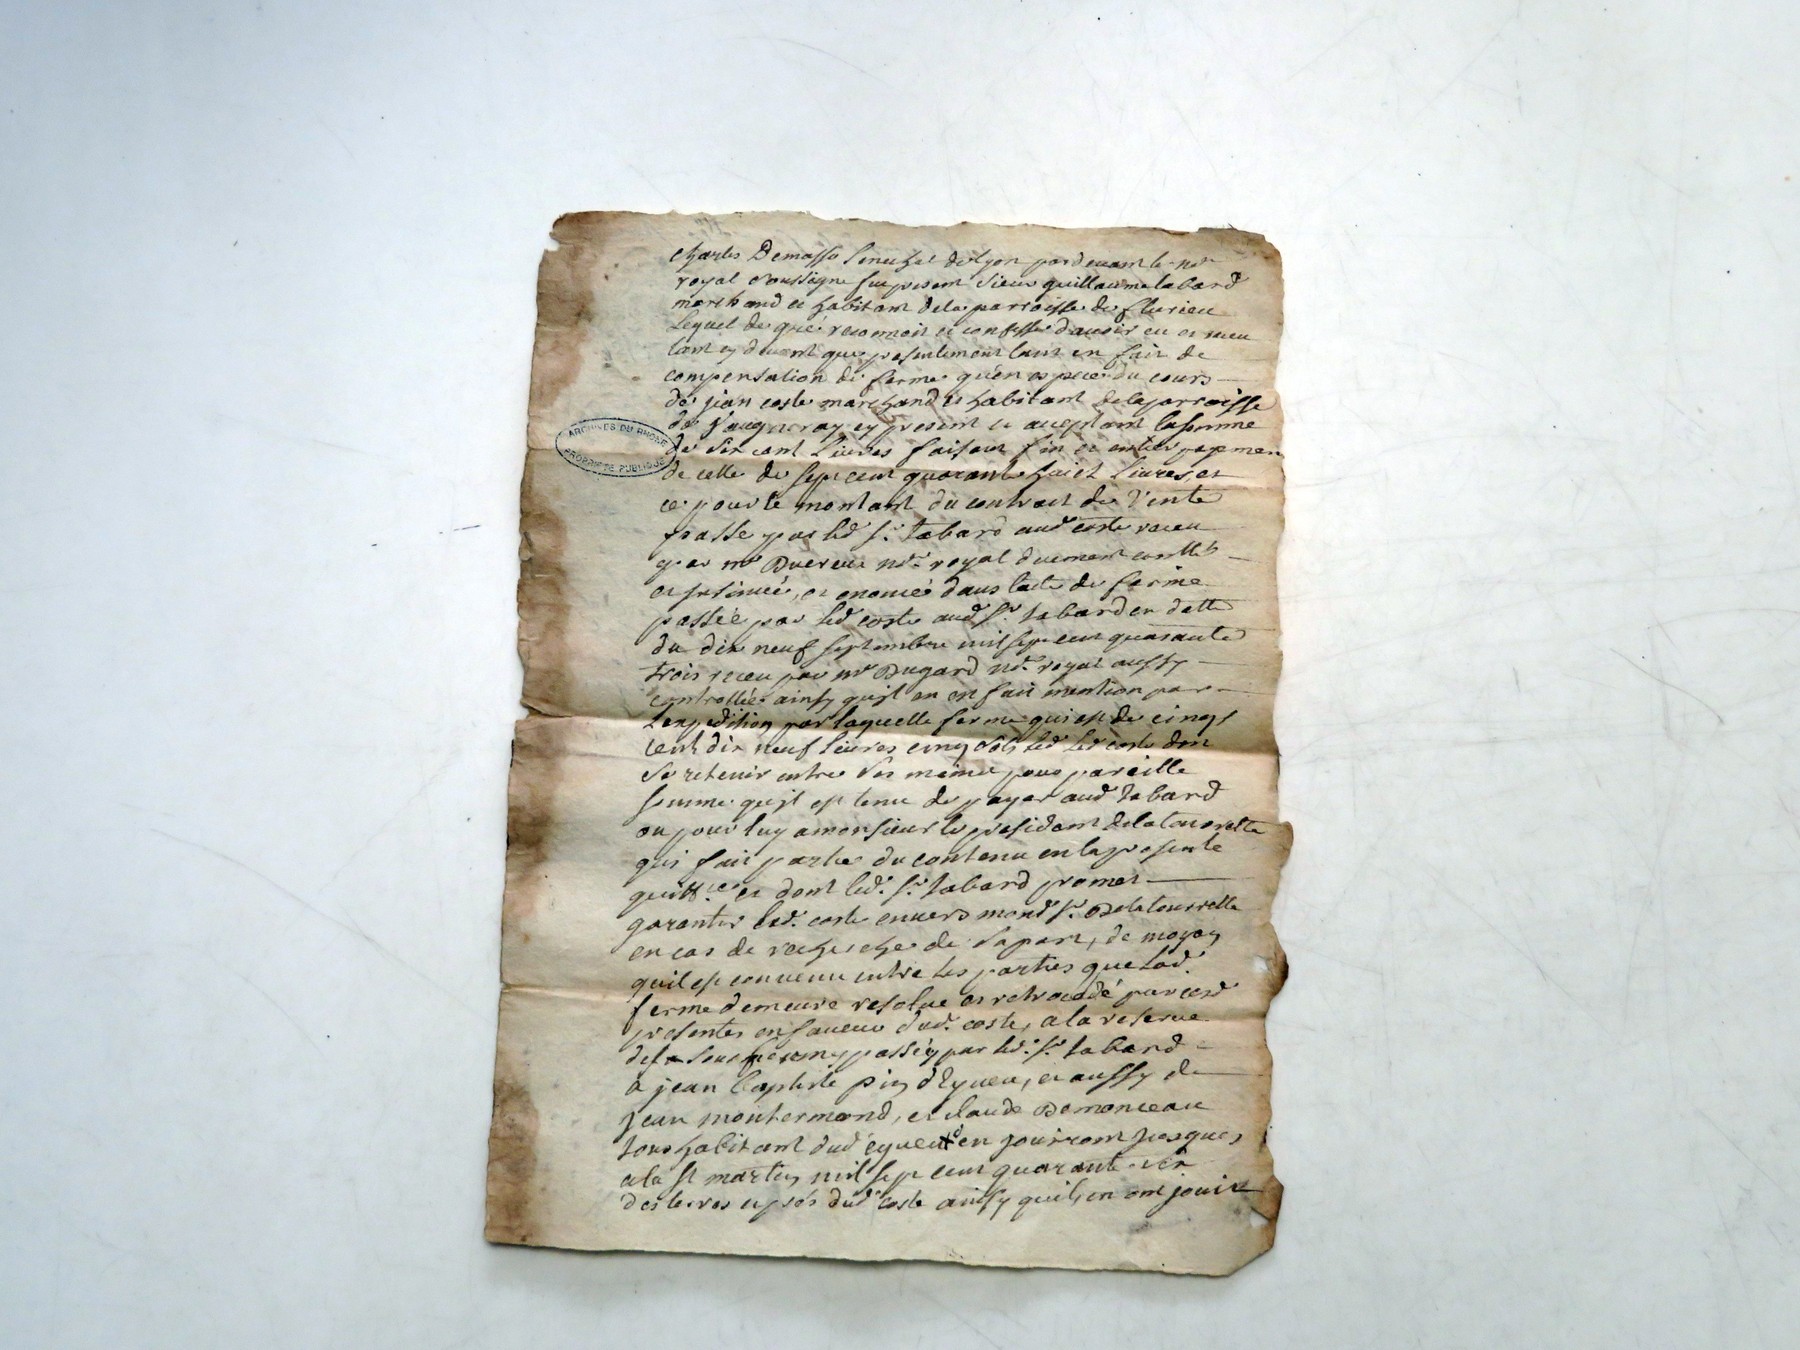 Charles Demasso seneschal de Lyon pardevant le no.re
royal soussigne fut present sieur guillaume tabard
marchand et habitant dela parroisse de flurieu
Lequel de gré reconnoit et confesse d'avoir eu et receu
tant cy devant que presentement tant en fait de
compensation de ferme qu'en espece du cours
de jean coste marchand et habitant de la parroisse
de present et acceptant la somme
de six cent Livres faisant fin et entier payement
de celle de sept cent quarante huict Livres, et
ce pour le montant du contract de Vente
passé par led. sr. tabard aud. coste receu
par me no.re royal duement contllé
et insinué, et enoncé dans lacte de ferme
passée par led. coste aud. sr. tabard en datte
du dix neuf septembre mil sept cent quarante
trois receu par me Dugard no.re royal aussy
controllée ainsy quil en est fait mention par
Lexpedition par laquelle ferme qui est de cinq
cent dix neuf livres cinq sols led. coste doit
se retenir entre ses mains pour pareille
somme quil est tenu de payer aud. tabard
ou pour luy a monsieur le president dela tourette
qui fait partie du contenu en la presente
quitt.ce et dont led. sr. tabard promet
garantir led. coste envers mond. sr. Delatourrette
en cas de recherche de sa part, de moyen
quil est convenu entre les parties que lad.
ferme demeure resolue et retrocedé par ces
presentes en faveur dud. coste, a la reserve
des passéé par led. sr. tabard
à jean baptiste d'Eyveu, et aussy de
jean montermond, et claude Demonceau
tous habitant dud. eyveu en jouiront jusques
a la st martin mil sept cent quarante six
des terres et prés dud. coste ainsy quils en ont jouit
ARCHIVES DU RHONE
PROPRIETE PUBLIQUE